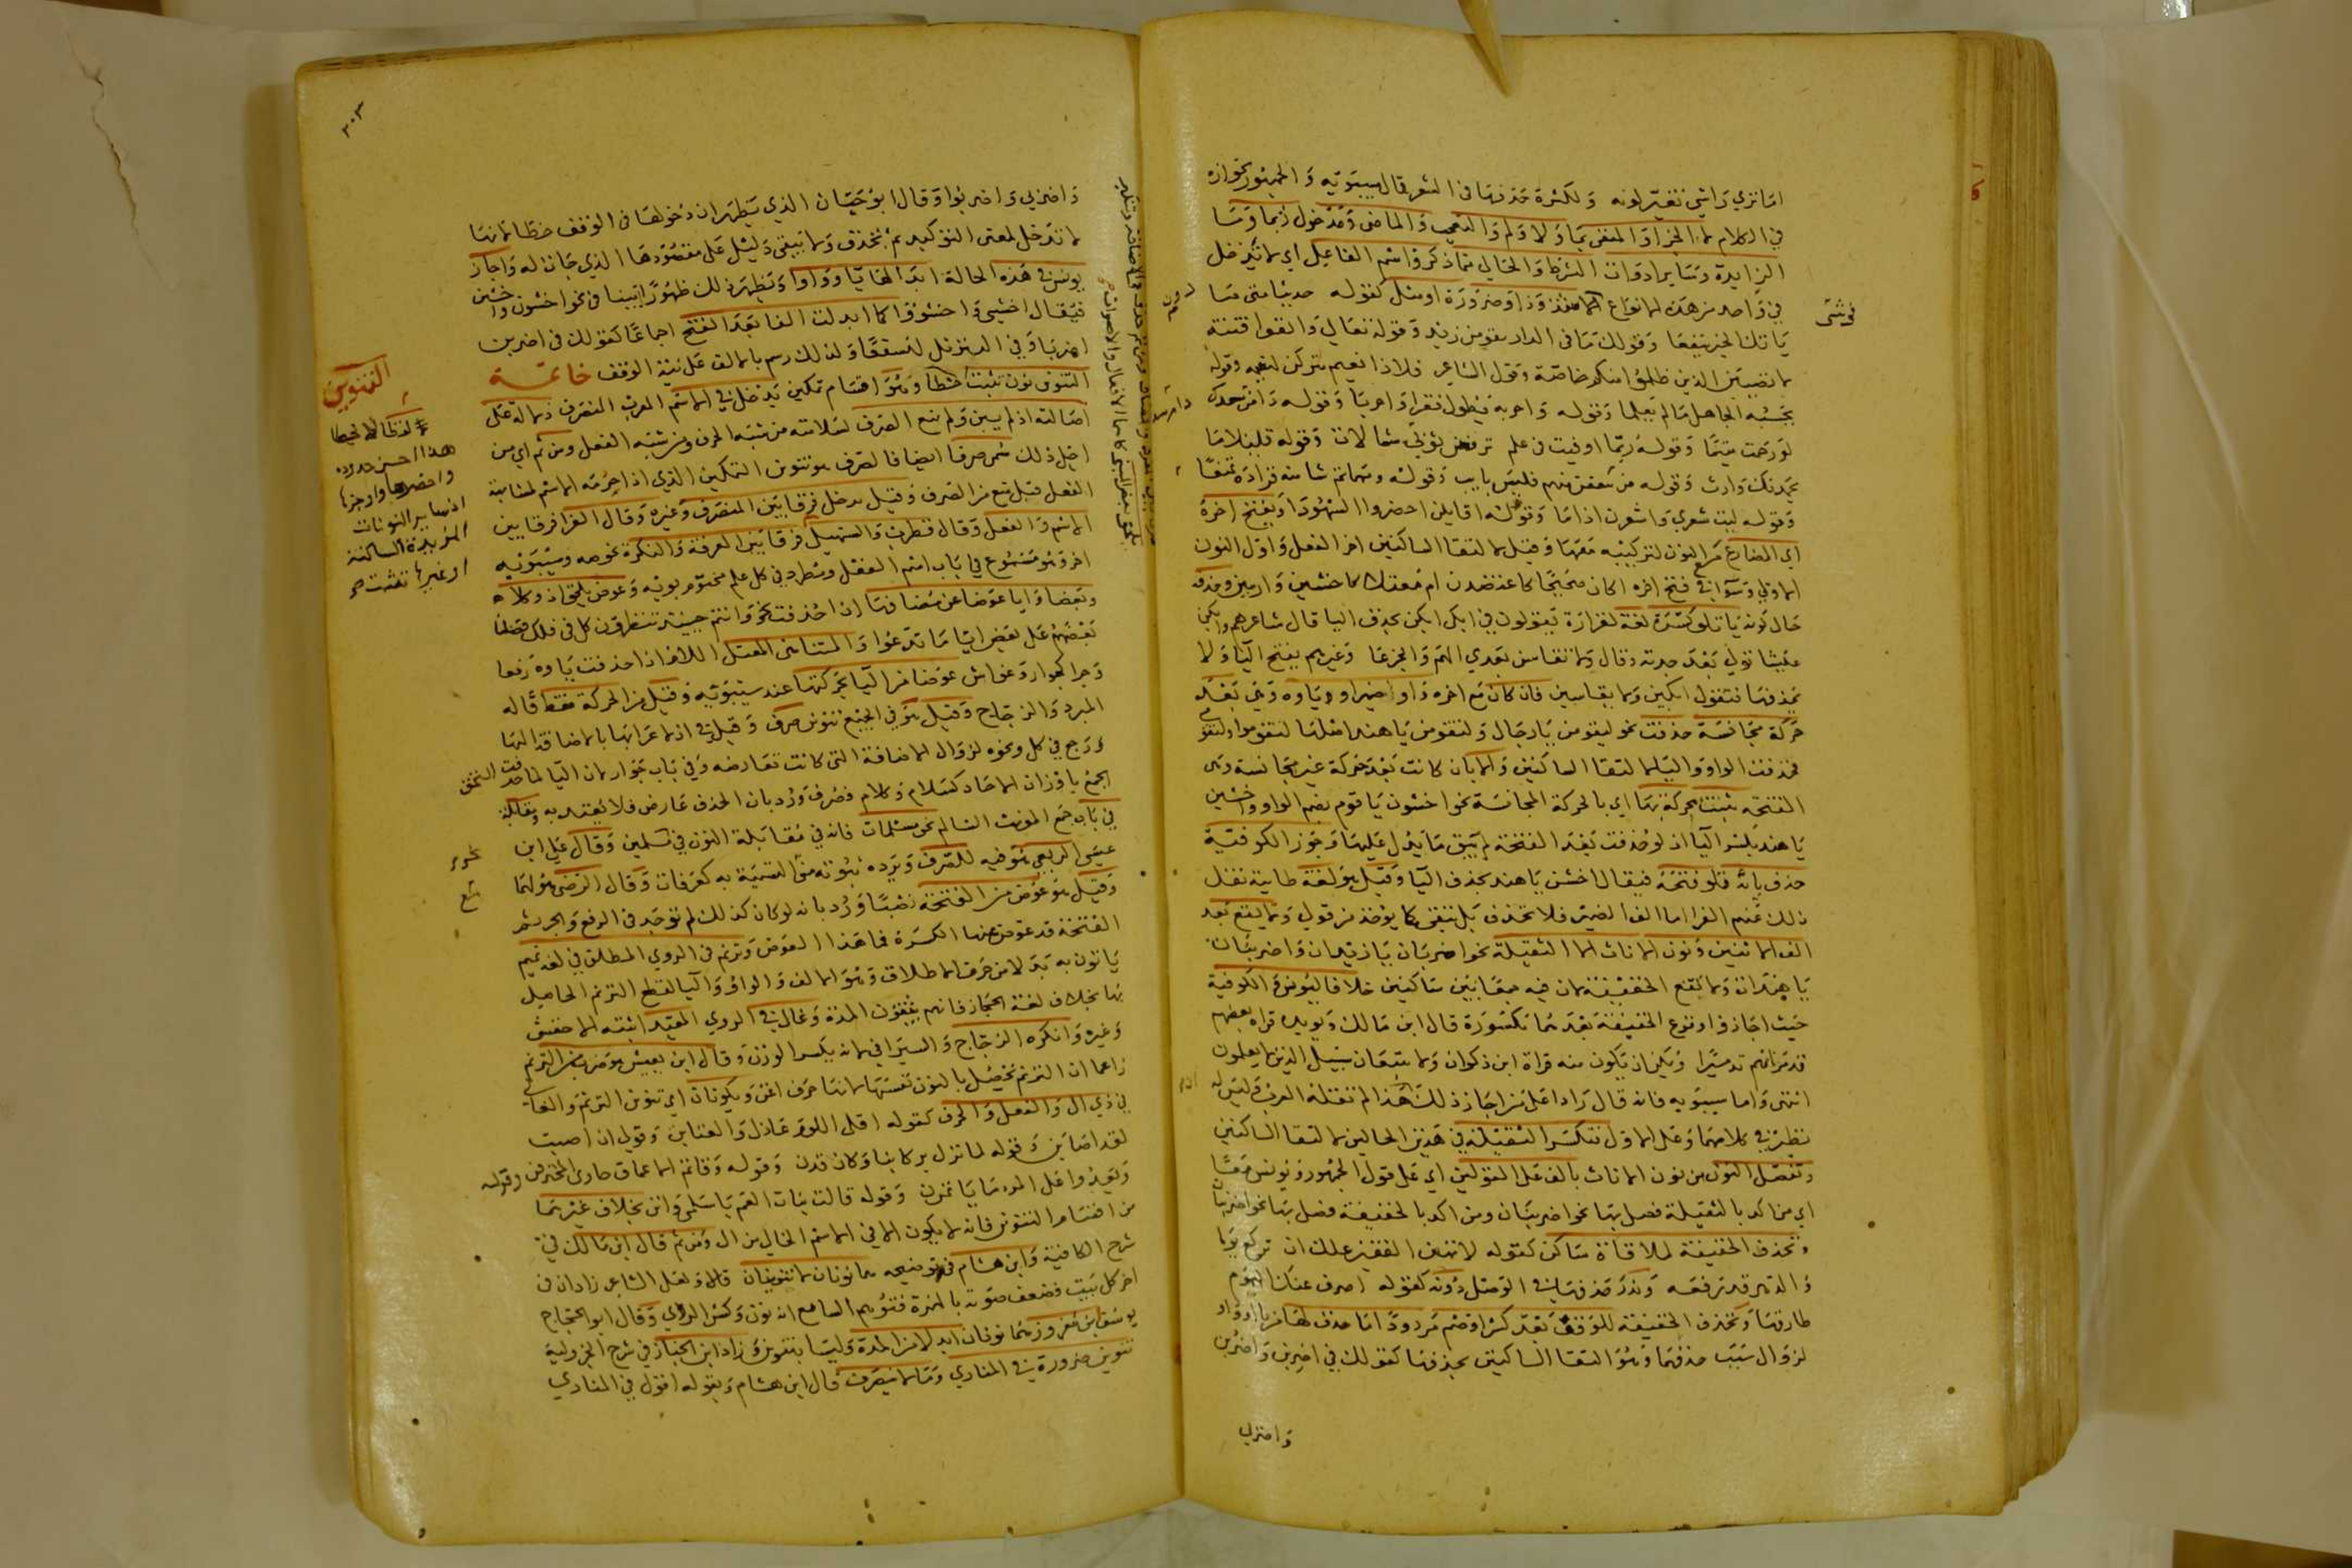 اما تري راسي تغير لونه ولكثرة حذفها في الشعر قال سيبويه والجمهور بجوازه
في الكلام الجزا والمنفي بما ولا ولم والتعجب والماضي ومدخول ربما وما
الزايدة وساير ادوات الشرط والخالي مما ذكر واسم الفاعل اي لا تدخل
في واحد من هذه الانواع الا شذوذا وضرورة كقوله حديثا متى ما
ياتك الخير ينفعا وقولك ما في الدار يقومن زيد وقوله تعالى واتقوا فتنة
لا تصيبن الذين ظلموا منكم خاصة وقول الشاعر فلا ذا نعيم يتركن لنعيمه وقوله
يحسبه الجاهل ما لم يعلما وقوله واحر به فقر واحريا وقوله دامن سعدك
لو رحمت متيما وقوله ربما اوفيت في علم ترفعن ثوبي شمالات وقوله قليلا ما
يحمدنك وارث وقوله من نثقفن منهم فليس بايب وقوله ومهما تشا منه فزارة تمنعا
وقوله ليت شعري واشعرن اذا ما وقوله اقايلن احضروا الشهودا ويفتح اخره
اي المضارع مع النون لتركيبه معها وقيل لالتقا الساكنين اخر الفعل واول النون
الاولى وسوا في فتح اخره اكان صحيحا كاعتضدن ام معتلا كاخشين وارمين وحذفه
حال كونه يا تلو كسرة لغة لفزارة يقولون في ابكي ابكن بحذف اليا قال شاعرهم وابكن
عيشا تولى بعد جدته وقال ولا تقاسن بعدي الهم والجزعا وغيرهم يفتح اليا ولا
يحذفها فتقول ابكين ولا يقاسين فان كان مع اخره واو الضمير او ياوه وهي بعد
حركة مجانسة حذفت نحو ليقومن يا رجال ولتقومن يا هند اصلها لتقوموا ولتقومي
فحذفت الواو واليا لالتقا الساكنين والا بان كانت بعد حركة غير مجانسة وهي
الفتحة ثبتت محركة بها اي بالحركة المجانسة نحو اخشون يا قوم بضم الواو واخشين
يا هند بكسر اليا اذ لو حذفت بعد الفتحة لم يبق ما يدل عليها وجوز الكوفية
حذف ياء تلو فتحة فيقال اخشن يا هند بحذف اليا وقيل هو لغة طايية نقل
ذلك عنهم الفرا اما الف الضمير فلا تحذف بل تبقى كما يوخذ من قولي وتقع بعد
الف الاثنين ونون الاناث الثقيلة نحو اضربان يا زيدان واضربنان
يا هندات ولا تقع الخفيفة لان فيه جمعا بين ساكنين خلافا ليونس والكوفية
حيث اجازوا وقوع الخفيفة بعدهما مكسورة قال ابن مالك ويويده قراة بعضهم
فدمرانهم تدميرا ويمكن ان يكون منه قراة ابن ذكوان ولا تتبعان سبيل الذين لا يعلمون
انتهى واما سيبويه فانه قال رادا على من اجاز ذلك هذا لم تقله العرب وليس له
نظير في كلامها وعلى الاول تكسر الثقيلة في هذين الحالين لالتقا الساكنين
وتفصل النون من نون الاناث بالف على القولين اي على قول الجمهور ويونس معا
اي من اكد بالثقيلة فصل بها نحو اضربنان ومن اكد بالخفيفة فصل بها نحو اضربنان
وتحذف الخفيفة لملاقاة ساكن كقوله لا تهين الفقير علك ان تركع يوما
والدهر قد رفعه وندر حذفها في الوصل دونه كقوله اصرف عنك الهموم
طارقها وتحذف الخفيفة للوقف بعد كسر او ضم مردودا ما حذف لها من يا او واو
لزوال سبب حذفها وهو التقا الساكنين بحذفها كقولك في اضربن واضربن
واضربي
فرشى
٣٠٣
واضربي واضربوا وقال ابو حيان الذي يظهر ان دخولها في الوقف خطا لانها
لا تدخل لمعنى التوكيد ثم تحذف ولا يبقى دليل على مقصودها الذي جات له واجاز
يونس في هذه الحالة ابدالها يا وواوا وتظهر ذلك ظهورا بينا في نحو اخشون واخشين
فيقال اخشيي واخشووا كما ابدلت الفا بعد الفتح اجماعا كقولك في اضربن
اضربا وفي التنزيل لنسفعا ولذلك رسم بالالف على نية الوقف خاتمة
التنوين نون تثبت لفظا لا خطا وهو اقسام تمكين يدخل في الاسم المعرب المنصرف دلالة على
اصالته اذ لم يبن ولم يمنع الصرف لسلامته من شبه الحرف ومن شبه الفعل ومن ثم اي من
اجل ذلك سمي صرفا ايضا فالصرف هو تنوين التمكين الذي اذا حرمه الاسم لمشابهة
الفعل قيل منع من الصرف وقيل يدخل فرقا بين المنصرف وغيره وقال الفرا فرقا بين
الاسم والفعل وقال قطرب والسهيلي فرقا بين المعرفة والنكرة نحو صه وسيبويه
اخر وهو مسموع في باب اسم الفعل ومطرد في كل علم مختوم بويه وعوض يلحق اذ وكلا
وبعضا وايا عوضا عن مضافها اذا حذفت نحو وانتم حينئذ تنظرون كل في فلك فضلنا
بعضهم على بعض ايا ما تدعوا والمتناهى المعتل اللام اذا حذفت ياوه رفعا
وجرا كجوار وغواش عوضا من اليا بحركتها عند سيبويه وقيل من الحركة فقط قاله
المبرد والزجاج وقيل هو في الجميع تنوين صرف وقيل في اذ لا عرابها بالاضافة اليها
ورجع في كل ونحوه لزوال الاضافة التي كانت تعارضه وفي باب جوار لان اليا لما حذفت التحق
الجمع باوزان الاحاد كسلام وكلام فصرف ورد بان الحذف عارض فلا يعتد به ومقابلة
في باب جمع المونث السالم نحو مسلمات فانه في مقابلة النون في مسلمين وقال علي ابن
عيسى الربعي هو فيه للصرف ويرده ثبوته مع التسمية به كعرفات وقال الرضي هو لهما
وقيل هو عوض من الفتحة نصبا ورد بانه لو كان كذلك لم يوجد في الرفع والجر ثم
الفتحة قد عوض عنها الكسرة فما هذا العوض وترنم في الروي المطلق في لغة تميم
ياتون به بدلا من حرف الاطلاق وهو الالف والواو واليا لقطع الترنم الحاصل
بها بخلاف لغة الحجاز فانهم يبقون المدة وغال في الروي المقيد اثبته الاخفش
وغيره وانكره الزجاج والسيرافي لانه يكسر الوزن وقال ابن يعيش هو ضرب من الترنم
زاعما ان الترنم يحصل بالنون نفسها لانها حرف اغن ويكونان اي تنوين الترنم والغالي
في ذي ال والفعل والحرف كقوله اقلي اللوم عاذل والعتابن وقولي ان اصبت
لقد اصابن وقوله لما تزل بركابنا وكان قدن وقوله وقاتم الاعماق خاوي المخترقن وقوله
ويعدوا على المرء ما ياتمرن وقوله قالت بنات العم يا سلمى وانن بخلاف غيرهما
من اقسام التنوين فانه لا يكون الا في الاسم الخالي من ال ومن ثم قال ابن مالك في
شرح الكافية وابن هشام في توضيحه هما نونان لا تنوينان قالا ولعل الشاعر زاد ان في
اخر كل بيت فضعف صوته بالهمزة فتوهم السامع انه نون وكسر الروي وقال ابو الحجاج
يوسف ابن معزوز هما نونان ابدلا من المدة وليسا بتنوين وزاد ابن الخباز في شرح الجزولية
تنوين ضرورة في المنادي وما لا ينصرف قال ابن هشام وبقوله اقول في المنادي
التنوين
هذا احسن حدوده
واخصرها واوجزها
اذ ساير النونات
المزيدة الساكنة
او غيرها تثبت